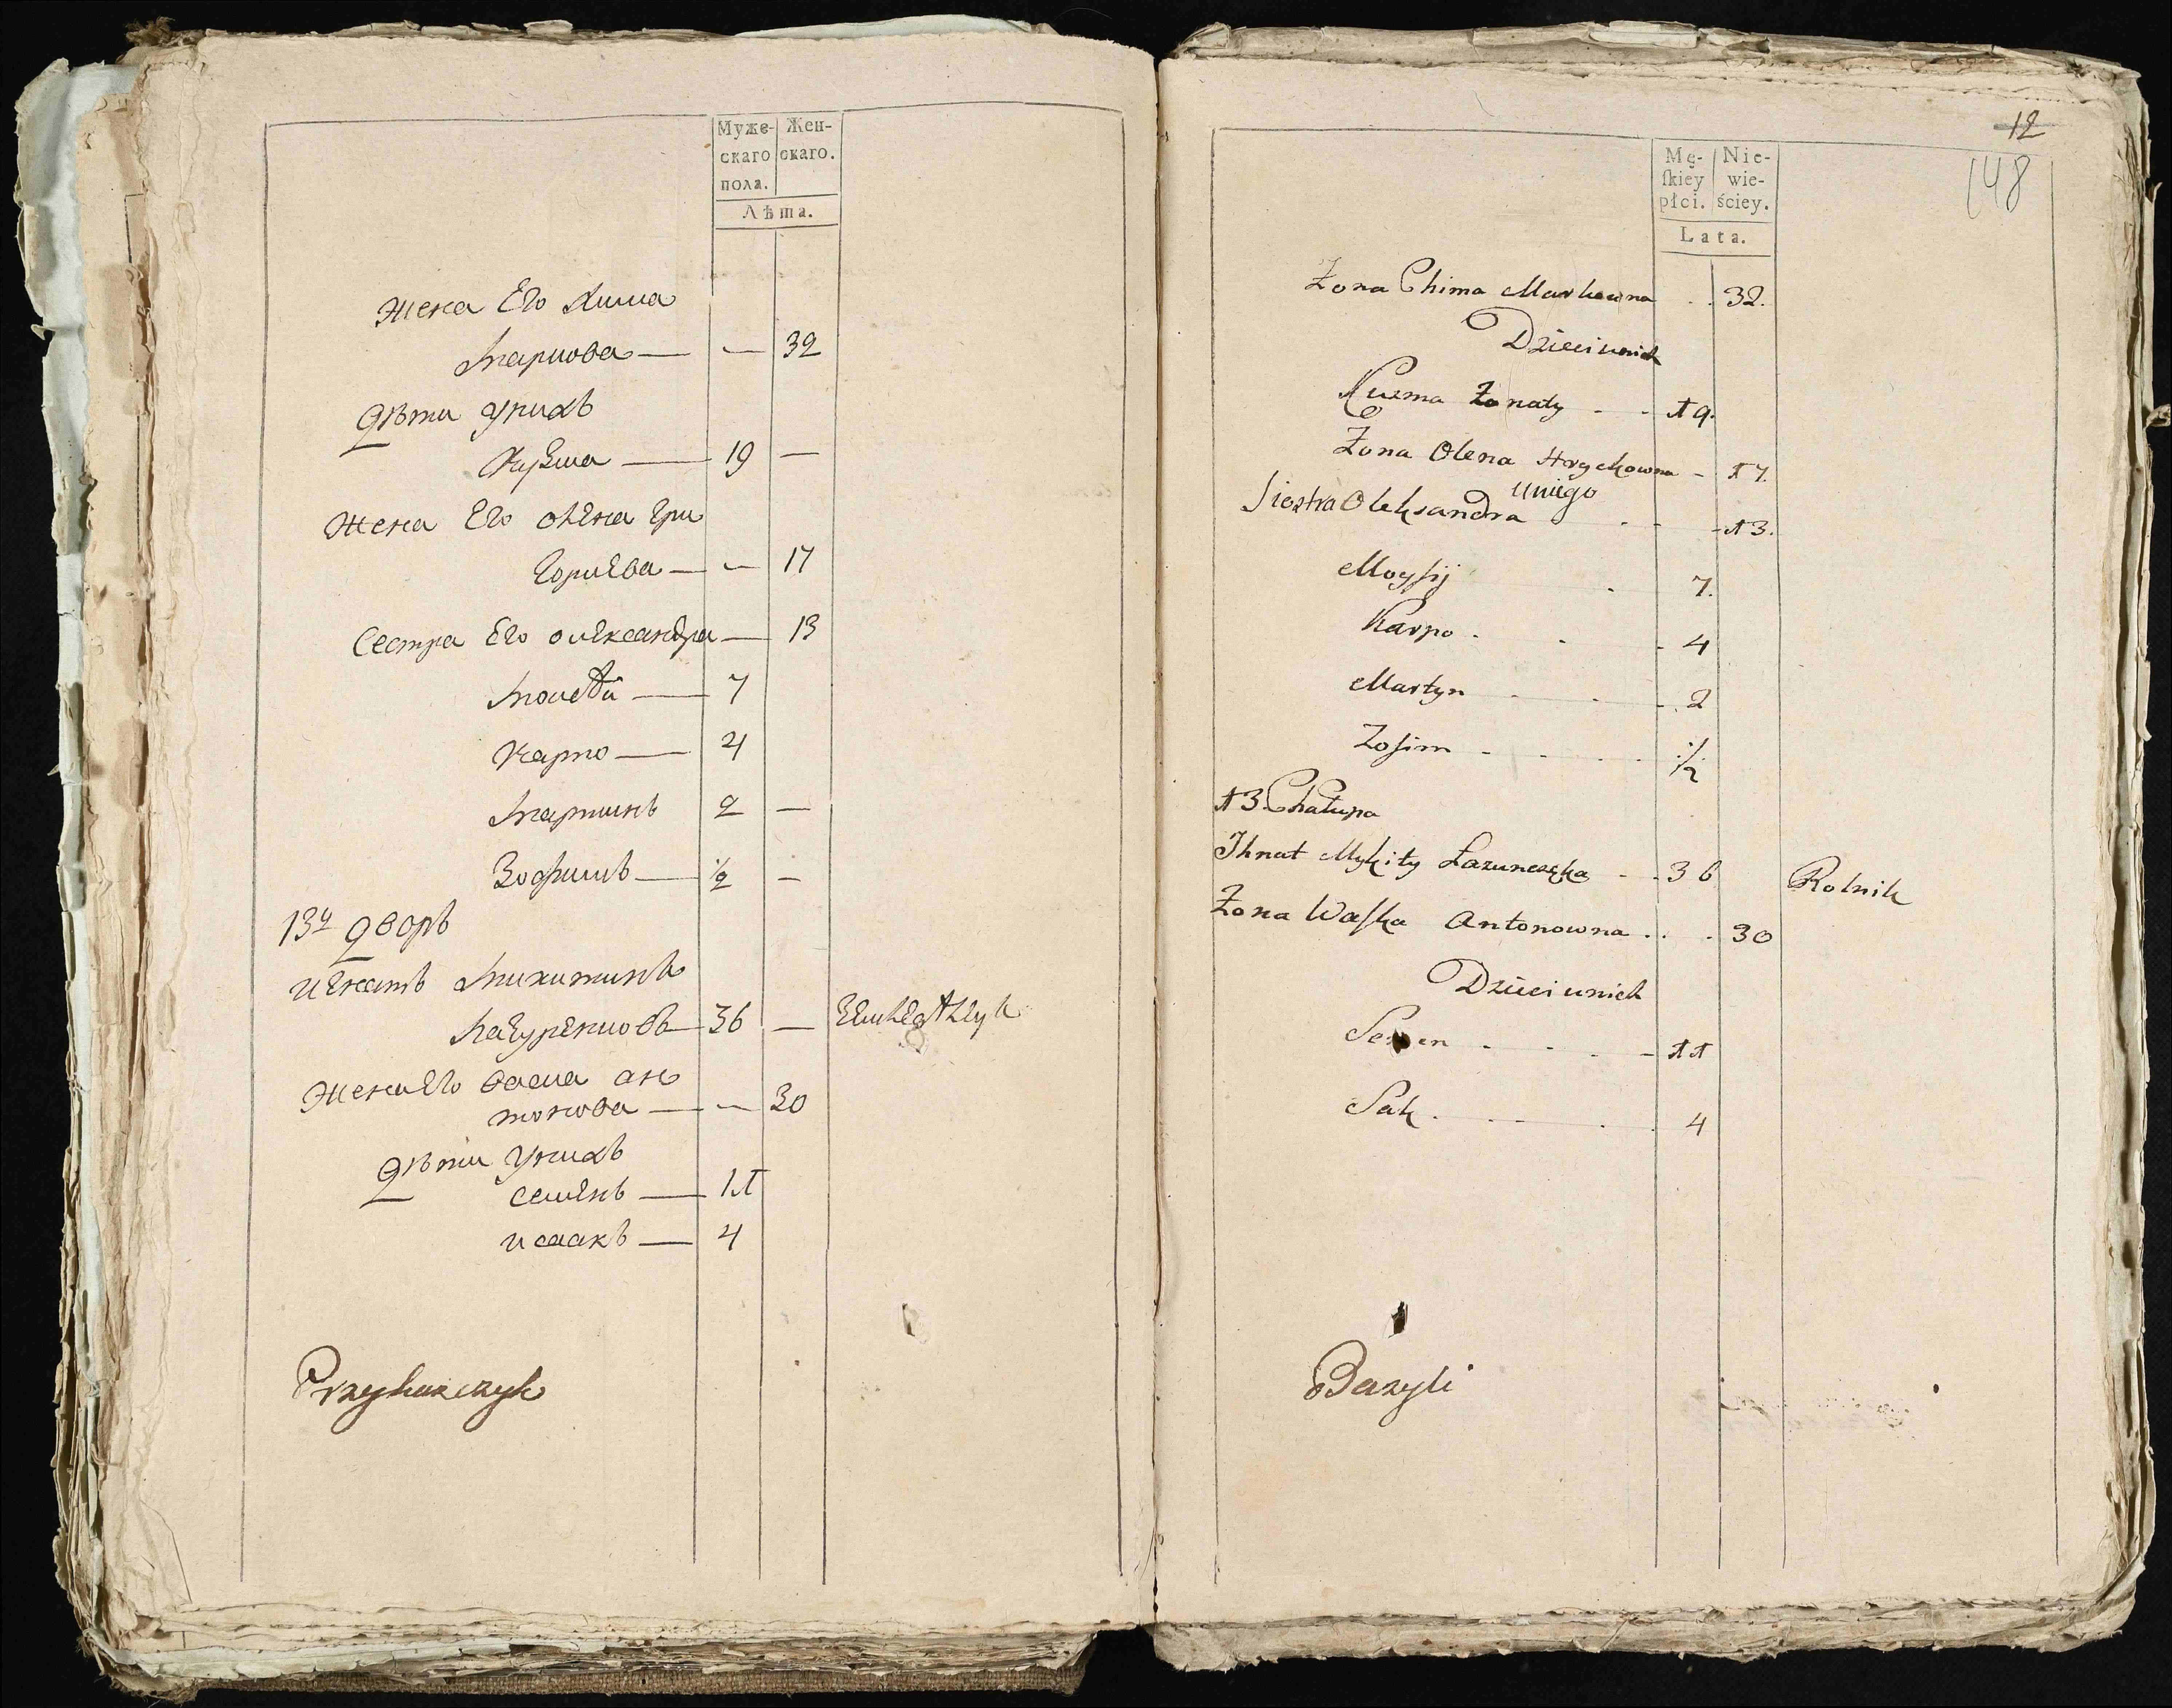 Муже- Жен-
скаго скаго.
пола.
Лѣта.
жена Его Хима
Маркова — — 32
Дѣти унихъ
Кузма — 19 —
жена Его олена гри
горіева — — 17
Сестра Его олександра — 13
Моисей — 7
Карпо — 4
Мартинъ 2 —
Зосимъ — 1/2 —
13й дворъ
игнатъ Микитинъ
36 —
жена Его васка ан
тонова — — 30
Дѣти унихъ
семенъ — 11
исаакъ — 4
Przykazczyk
12
148
Mę- Nie-
ſkiey wie-
płci. ściey.
Lata.
Żona Chima Markowna . . 32.
Dzieci unich
Kuzma Żonaty - - 19.
Żona Olena Hryckowna - 17.
uniego
Siostra Oleksandra - - - 13.
Moyſij . 7.
Karpo . . - 4
Martyn - . - . 2
Zoſim - - . . - 1/2
13. Chałupa
Ihnat Mykity Łazurczęka - . 36 Rolnik
Żona Waſka Antonowna . . . 30
Dzieci unich
Semen - - . - 11
Sak . - - . . 4
Bazyli